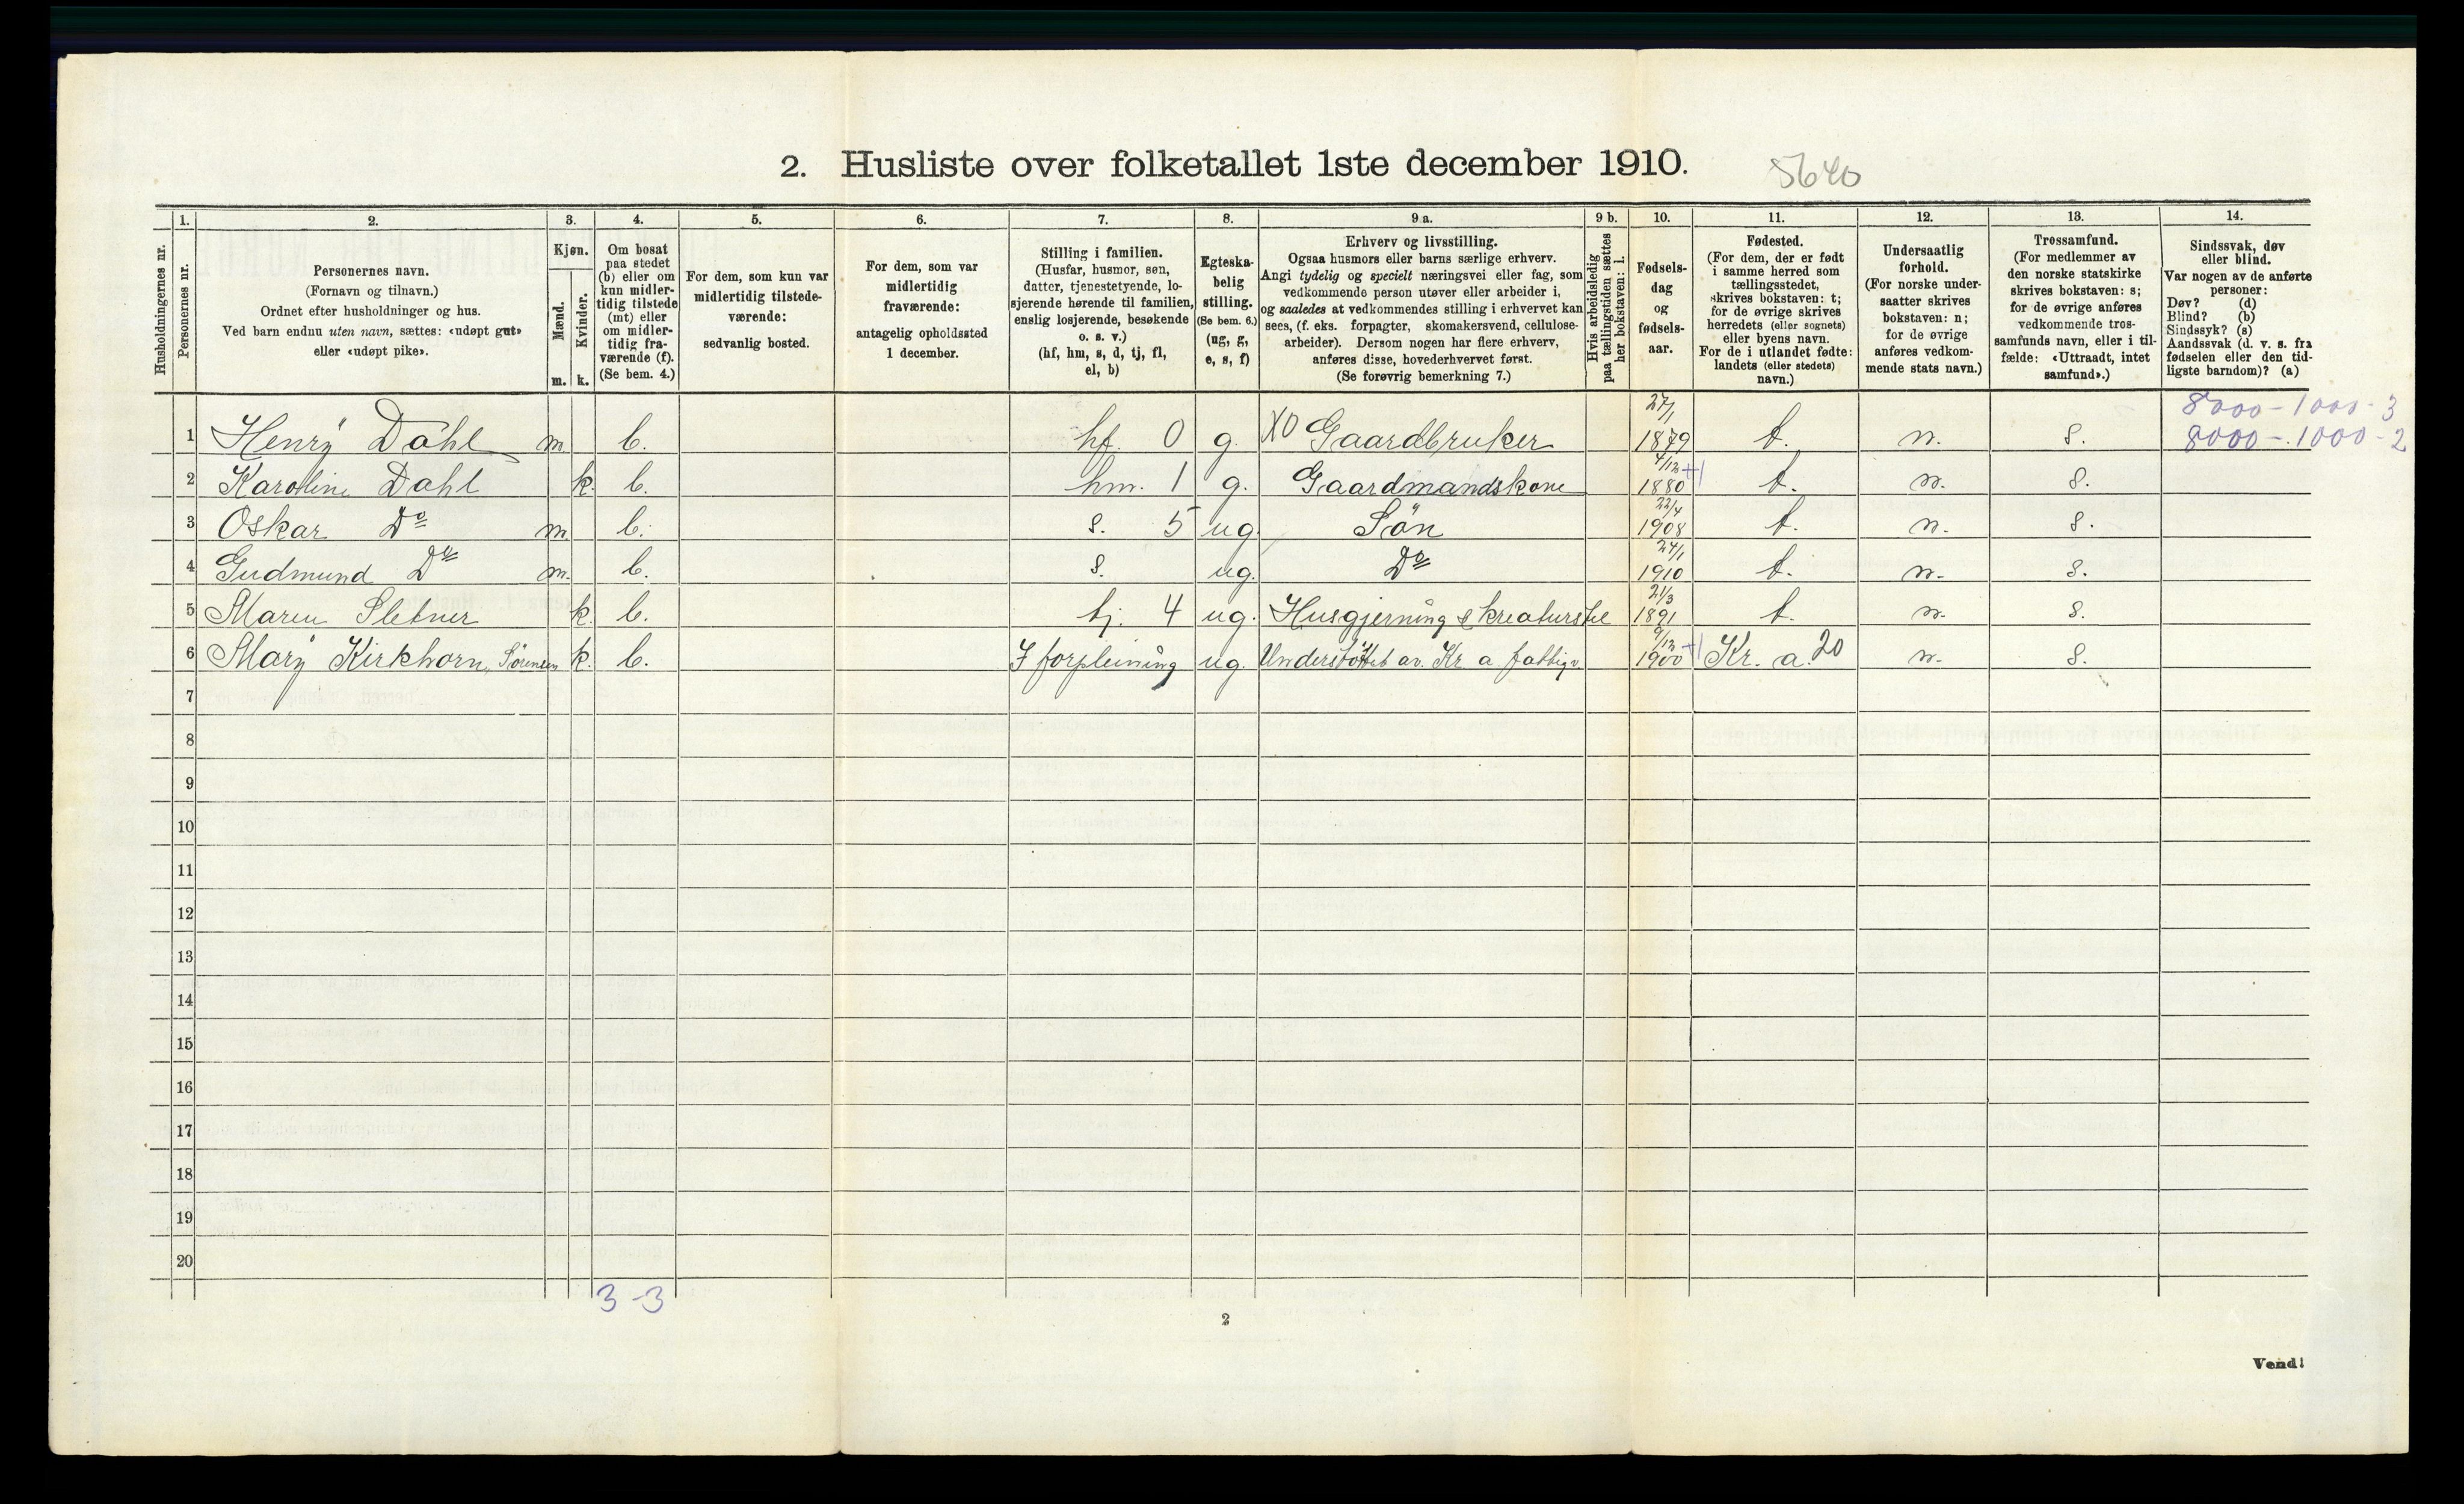 2. Husliste over folketallet 1ste december 1910.
5640
Husholdningernes nr.
1.
Personernes nr.
2.
Personernes navn.
(Fornavn og tilnavn.)
Ordnet efter husholdninger og hus.
Ved barn endnu uten navn, sættes: «udøpt gut»
eller «udøpt pike».
3.
Kjøn.
Mænd.
Kvinder.
m. k.
4.
Om bosat
paa stedet
(b) eller om
kun midler-
tidig tilstede
(mt) eller
om midler-
tidig fra-
værende (f).
(Se bem. 4.)
5.
For dem, som kun var
midlertidig tilstede-
værende:
sedvanlig bosted.
6.
For dem, som var
midlertidig
fraværende:
antagelig opholdssted
1 december.
7.
Stilling i familien.
(Husfar, husmor, søn,
datter, tjenestetyende, lo-
sjerende hørende til familien,
enslig losjerende, besøkende
o. s. v.)
(hf, hm, s, d, tj, fl,
el, b)
8.
Egteska-
belig
stilling.
(Se bem. 6.)
(ug, g,
e, s, f)
9 a.
Erhverv og livsstilling.
Ogsaa husmors eller barns særlige erhverv.
Angi tydelig og specielt næringsvei eller fag, som
vedkommende person utøver eller arbeider i,
og saaledes at vedkommendes stilling i erhvervet kan
sees, (f. eks. forpagter, skomakersvend, cellulose-
arbeider). Dersom nogen har flere erhverv,
anføres disse, hovederhvervet først.
(Se forøvrig bemerkning 7.)
9 b.
Hvis arbeidsledig
paa tællingstiden sættes
her bokstaven: l.
10.
Fødsels-
dag
og
fødsels-
aar.
11.
Fødested.
(For dem, der er født
i samme herred som
tællingsstedet,
skrives bokstaven: t;
for de øvrige skrives
herredets (eller sognets)
eller byens navn.
For de i utlandet fødte:
landets (eller stedets)
navn.)
12.
Undersaatlig
forhold.
(For norske under-
saatter skrives
bokstaven: n;
for de øvrige
anføres vedkom-
mende stats navn.)
13.
Trossamfund.
(For medlemmer av
den norske statskirke
skrives bokstaven: s;
for de øvrige anføres
vedkommende tros-
samfunds navn, eller i til-
fælde: «Uttraadt, intet
samfund».)
14.
Sindssvak, døv
eller blind.
Var nogen av de anførte
personer:
Døv? (d)
Blind? (b)
Sindssyk? (s)
Aandssvak (d. v. s. fra
fødselen eller den tid-
ligste barndom)? (a)
8000 - 1000 - 3
1 Henry Dahl m b. hf. 0 g. X0 Gaardbruker 27/1 1879 t. n. s. 8000 - 1000 - 2
2 Karoline Dahl k. b. hm. 1 g. Gaardmandskone 4/12 1880 +1 t. n. s.
3 Oskar Do m b. s. 5 ug. Søn 22/4 1908 t. n. s.
4 Gudmund Do m. b. s. ug. Do 24/1 1910 t. n. s.
5 Maren Sletner k. b. tj. 4 ug. Husgjerning & kreaturstel 21/3 1891 t. n. s.
6 Mary Kirkhorn, Sørensen k. b. I forpleining ug. Understøttet av Kr. a. fattigv. 9/12 1900 +1 Kr. a. 20 n. s.
7
8
9
10
11
12
13
14
15
16
17
18
19
20
3 - 3
2
Vend!